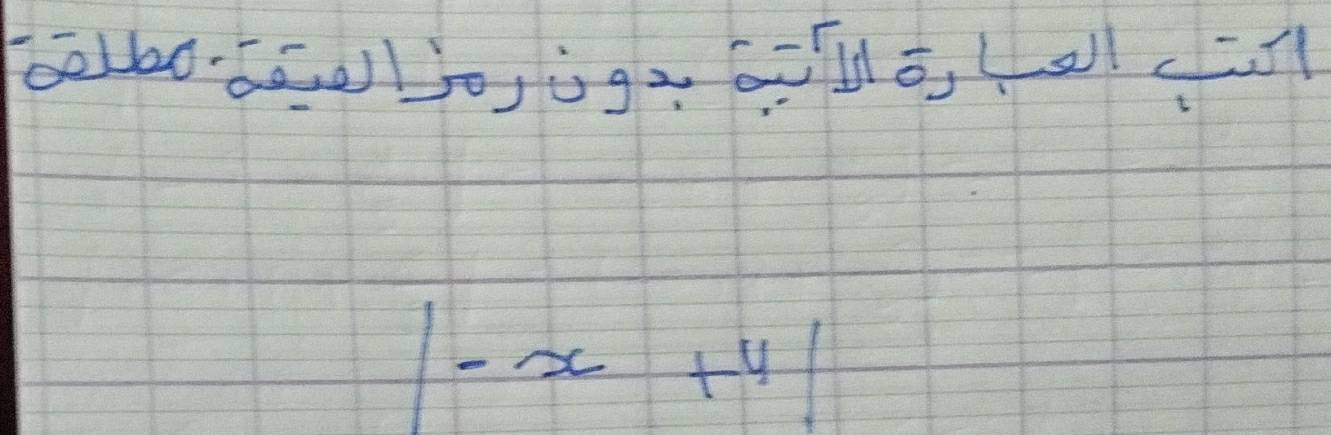 اكتب العبارة الآتية بدون رمز القيمة. مطلقة
|-x +4|